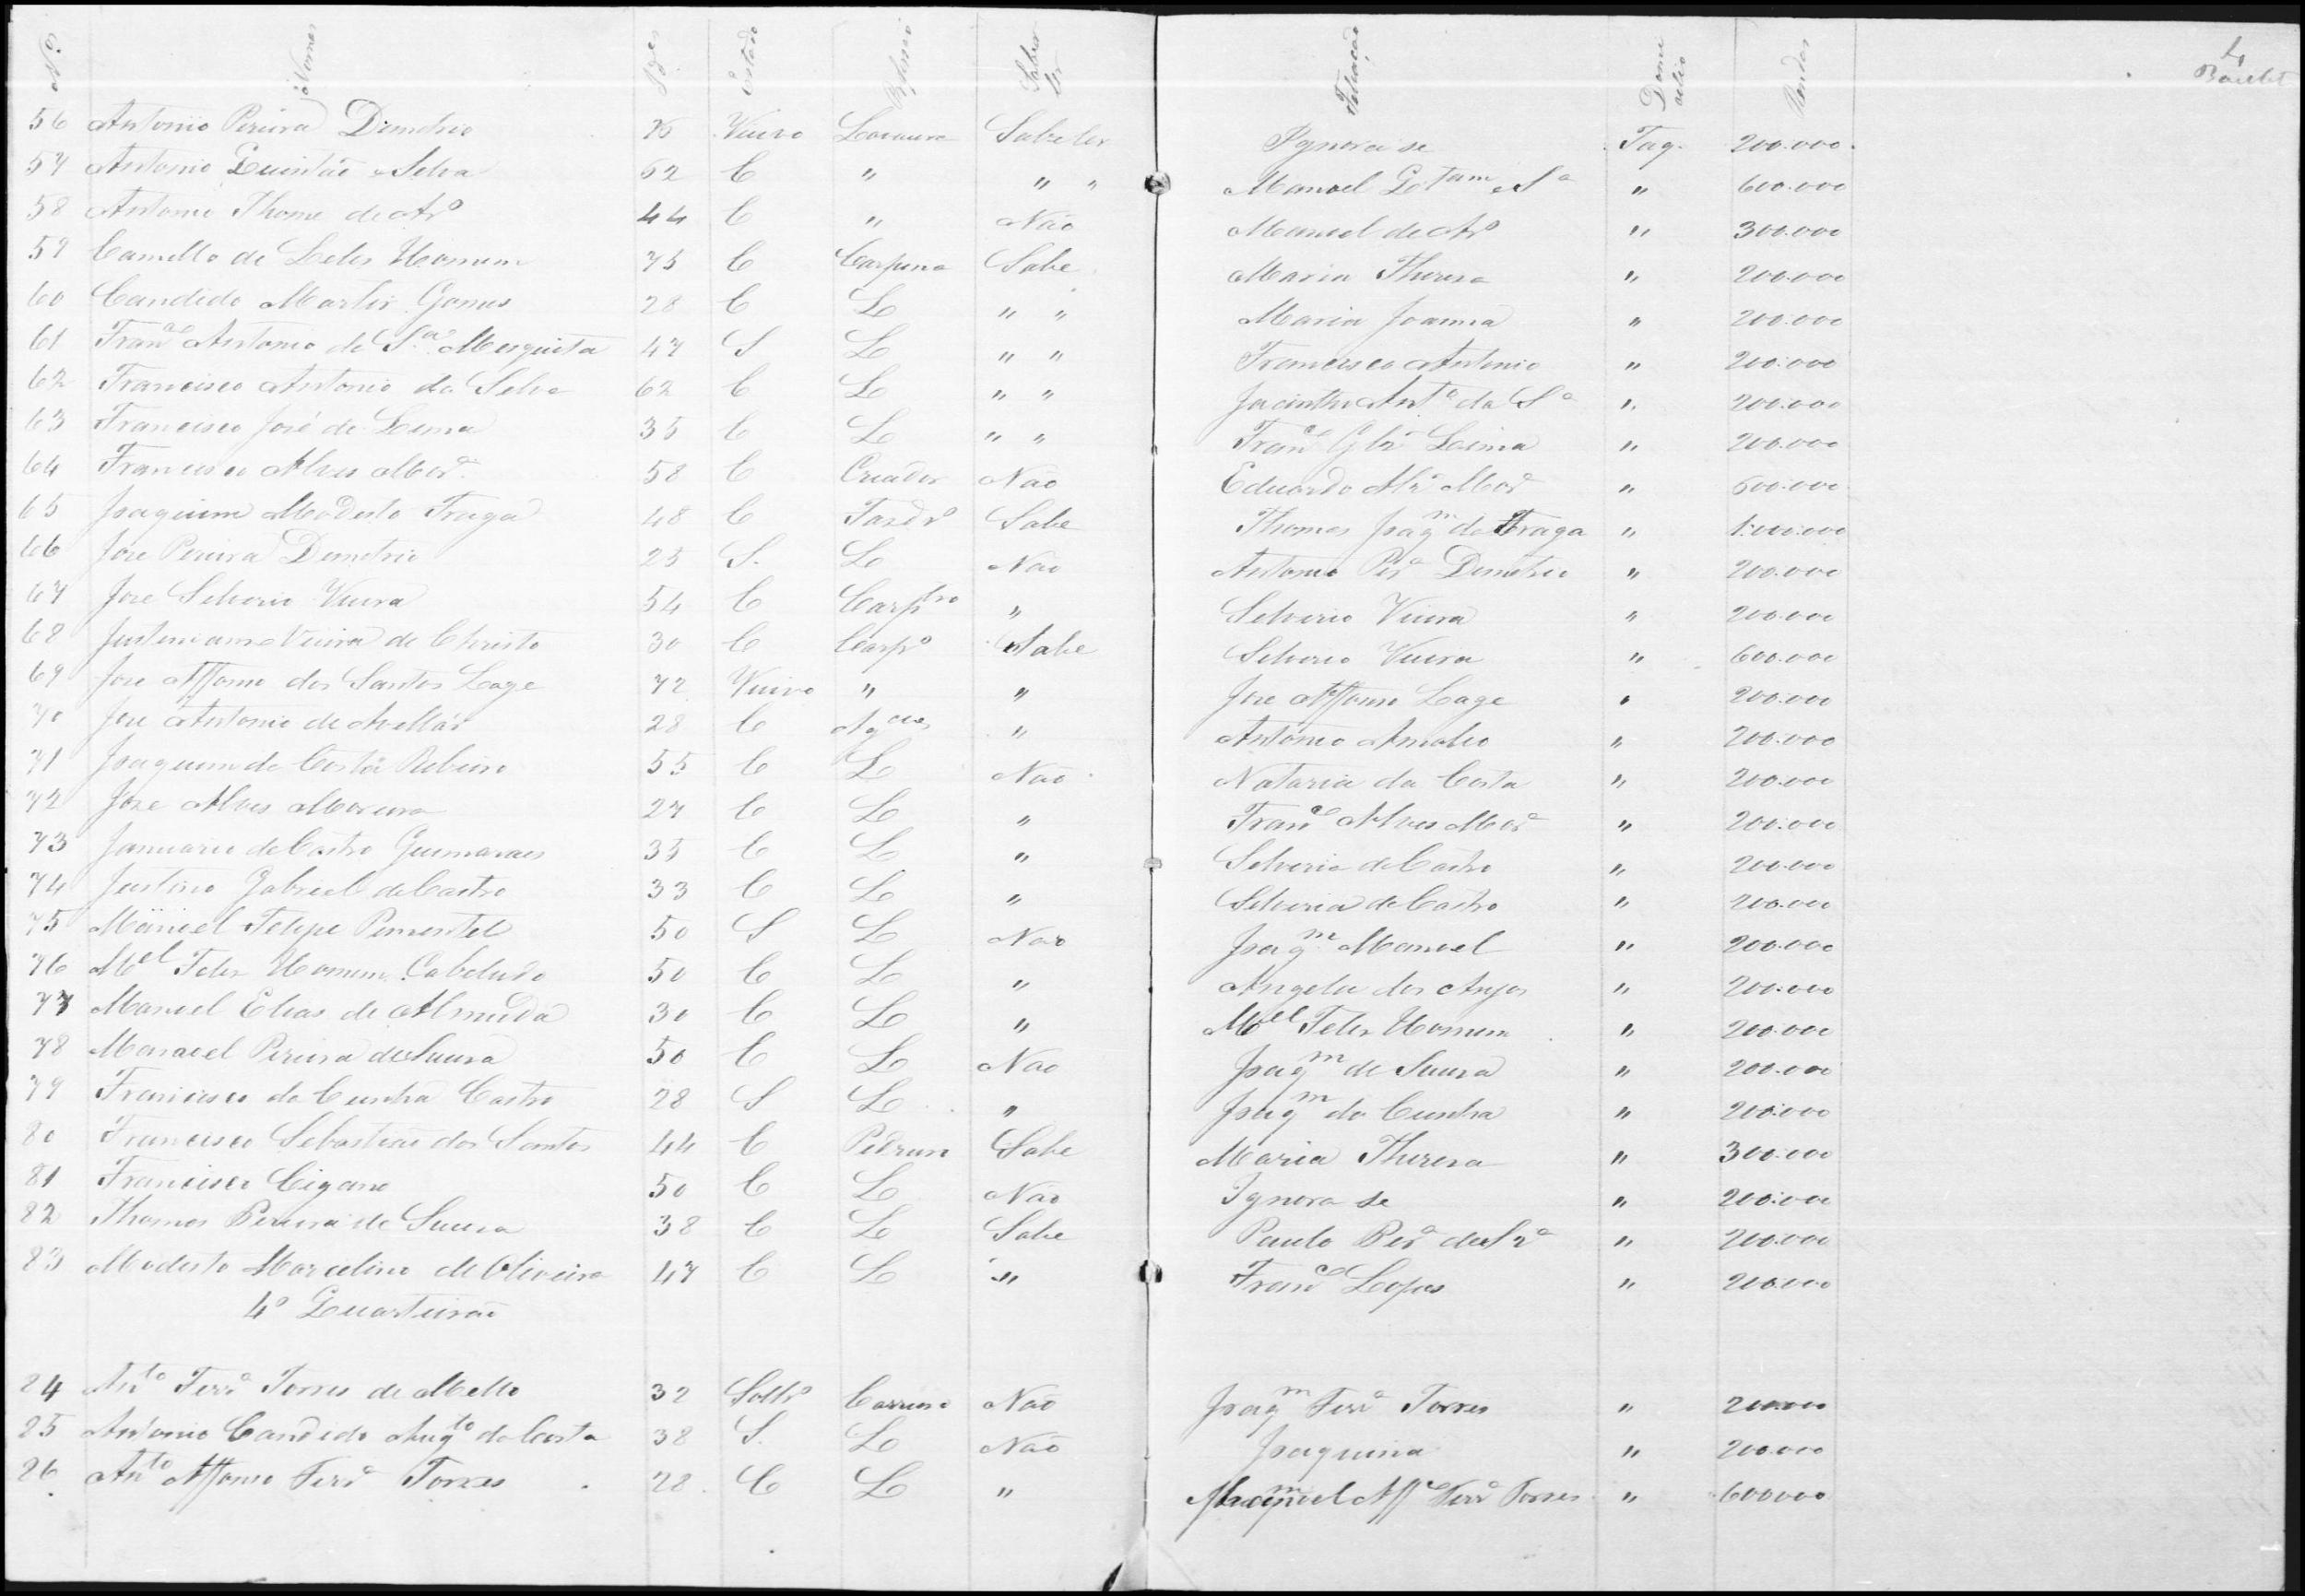 Nº Nomes Id.es Estado Saber ler Filiação Domicilio Rendas 4
56 Antonio Pereira Demetrio Viuvo Lavoura Sabe ler Ignora se Taq. 200.000
57 Antonio Quintão Silva 62 C " " " Manoel Sª " 600.000
58 Antonio Thome de Arº 44 C " Não Manoel de Arº " 300.000
59 Camillo de Leles Homem 75 C Carpina Sabe Maria Theresa " 200.000
60 Candido Martir Gomes 28 C L " " Maria Joanna " 200.000
61 Franco Antonio de Sª Mesquita 47 S L " " Francisco Antonio " 200.000
62 Francisco Antonio da Silva 62 C L " " Jacintho Antº da Sª " 200.000
63 Francisco José de Lima 35 C L " " Franco Glz Lima " 200.000
64 Francisco Alves Morª 58 C Criador Não Eduardo Alz Morª " 600.000
65 Joaquim Modesto Fraga 48 C Fazdrº Sabe Thomas Joaqm de Fraga " 1:000.000
66 Jose Pereira Demetrio 25 S. L Não Antonio Perª Demetrio " 200.000
67 Jose Silverio Vieira 54 C Carptro " Silverio Vieira " 200.000
68 Justiniano Vieira de Christo 30 C Carpº Sabe Silverio Vieira " 600.000
69 Jose Affonso dos Santos Lage 72 Viuvo " " Jose Affonso Lage " 200.000
70 Jose Antonio de Avellar 28 C Agcia " Antonio " 200.000
71 Joaquim da Costa Ribeiro 55 C L Não Nataria da Costa " 200.000
72 Jose Alves Moreira 27 C L " Franco Alves Morª " 200.000
73 Januario de Castro Guimaraes 35 C L " Silveria de Castro " 200.000
74 Justino Gabriel de Castro 33 C L " Silveria de Castro " 200.000
75 Manoel Felipe Pimentel 50 S L Não Joaqm Manoel " 200.000
76 Mel Teles Homem Cabeludo 50 C L " Angela dos Anjos " 200.000
77 Manoel Elias de Almeida 30 C L " Mel Teles Homem " 200.000
78 Manoel Pereira de Souza 50 C L Não Joaqm de Souza " 200.000
79 Francisco da Cunha Castro 28 S L " Joaqm da Cunha " 200.000
80 Francisco Sebastião dos Santos 44 C Pedreiro Sabe Maria Theresa " 300.000
81 Francisco Cigano 50 C L Não Ignora se " 200.000
82 Thomas Pereira de Souza 38 C L Sabe Paulo Perª de Szª " 200.000
83 Modesto Marcelino de Oliveira 47 C L " Franco Lopes " 200.000
4º Quarteirão
84 Anto Ferrª Torres de Mello 32 Soltrº Carreiro Não Joaqm Ferrª Torres " 200.000
85 Antonio Candido Augto da Costa 38 S. L Não Joaquina " 200.000
86 Anto Affonso Ferrª Torres 28 C L " Affº Ferrª Torres " 600.000